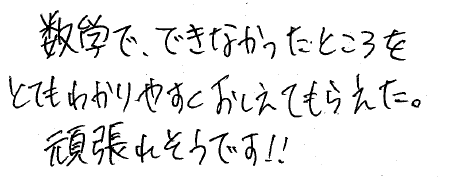 数学で、できなかったところを
とてもわかりやすくおしえてもらえた。
頑張れそうです!!